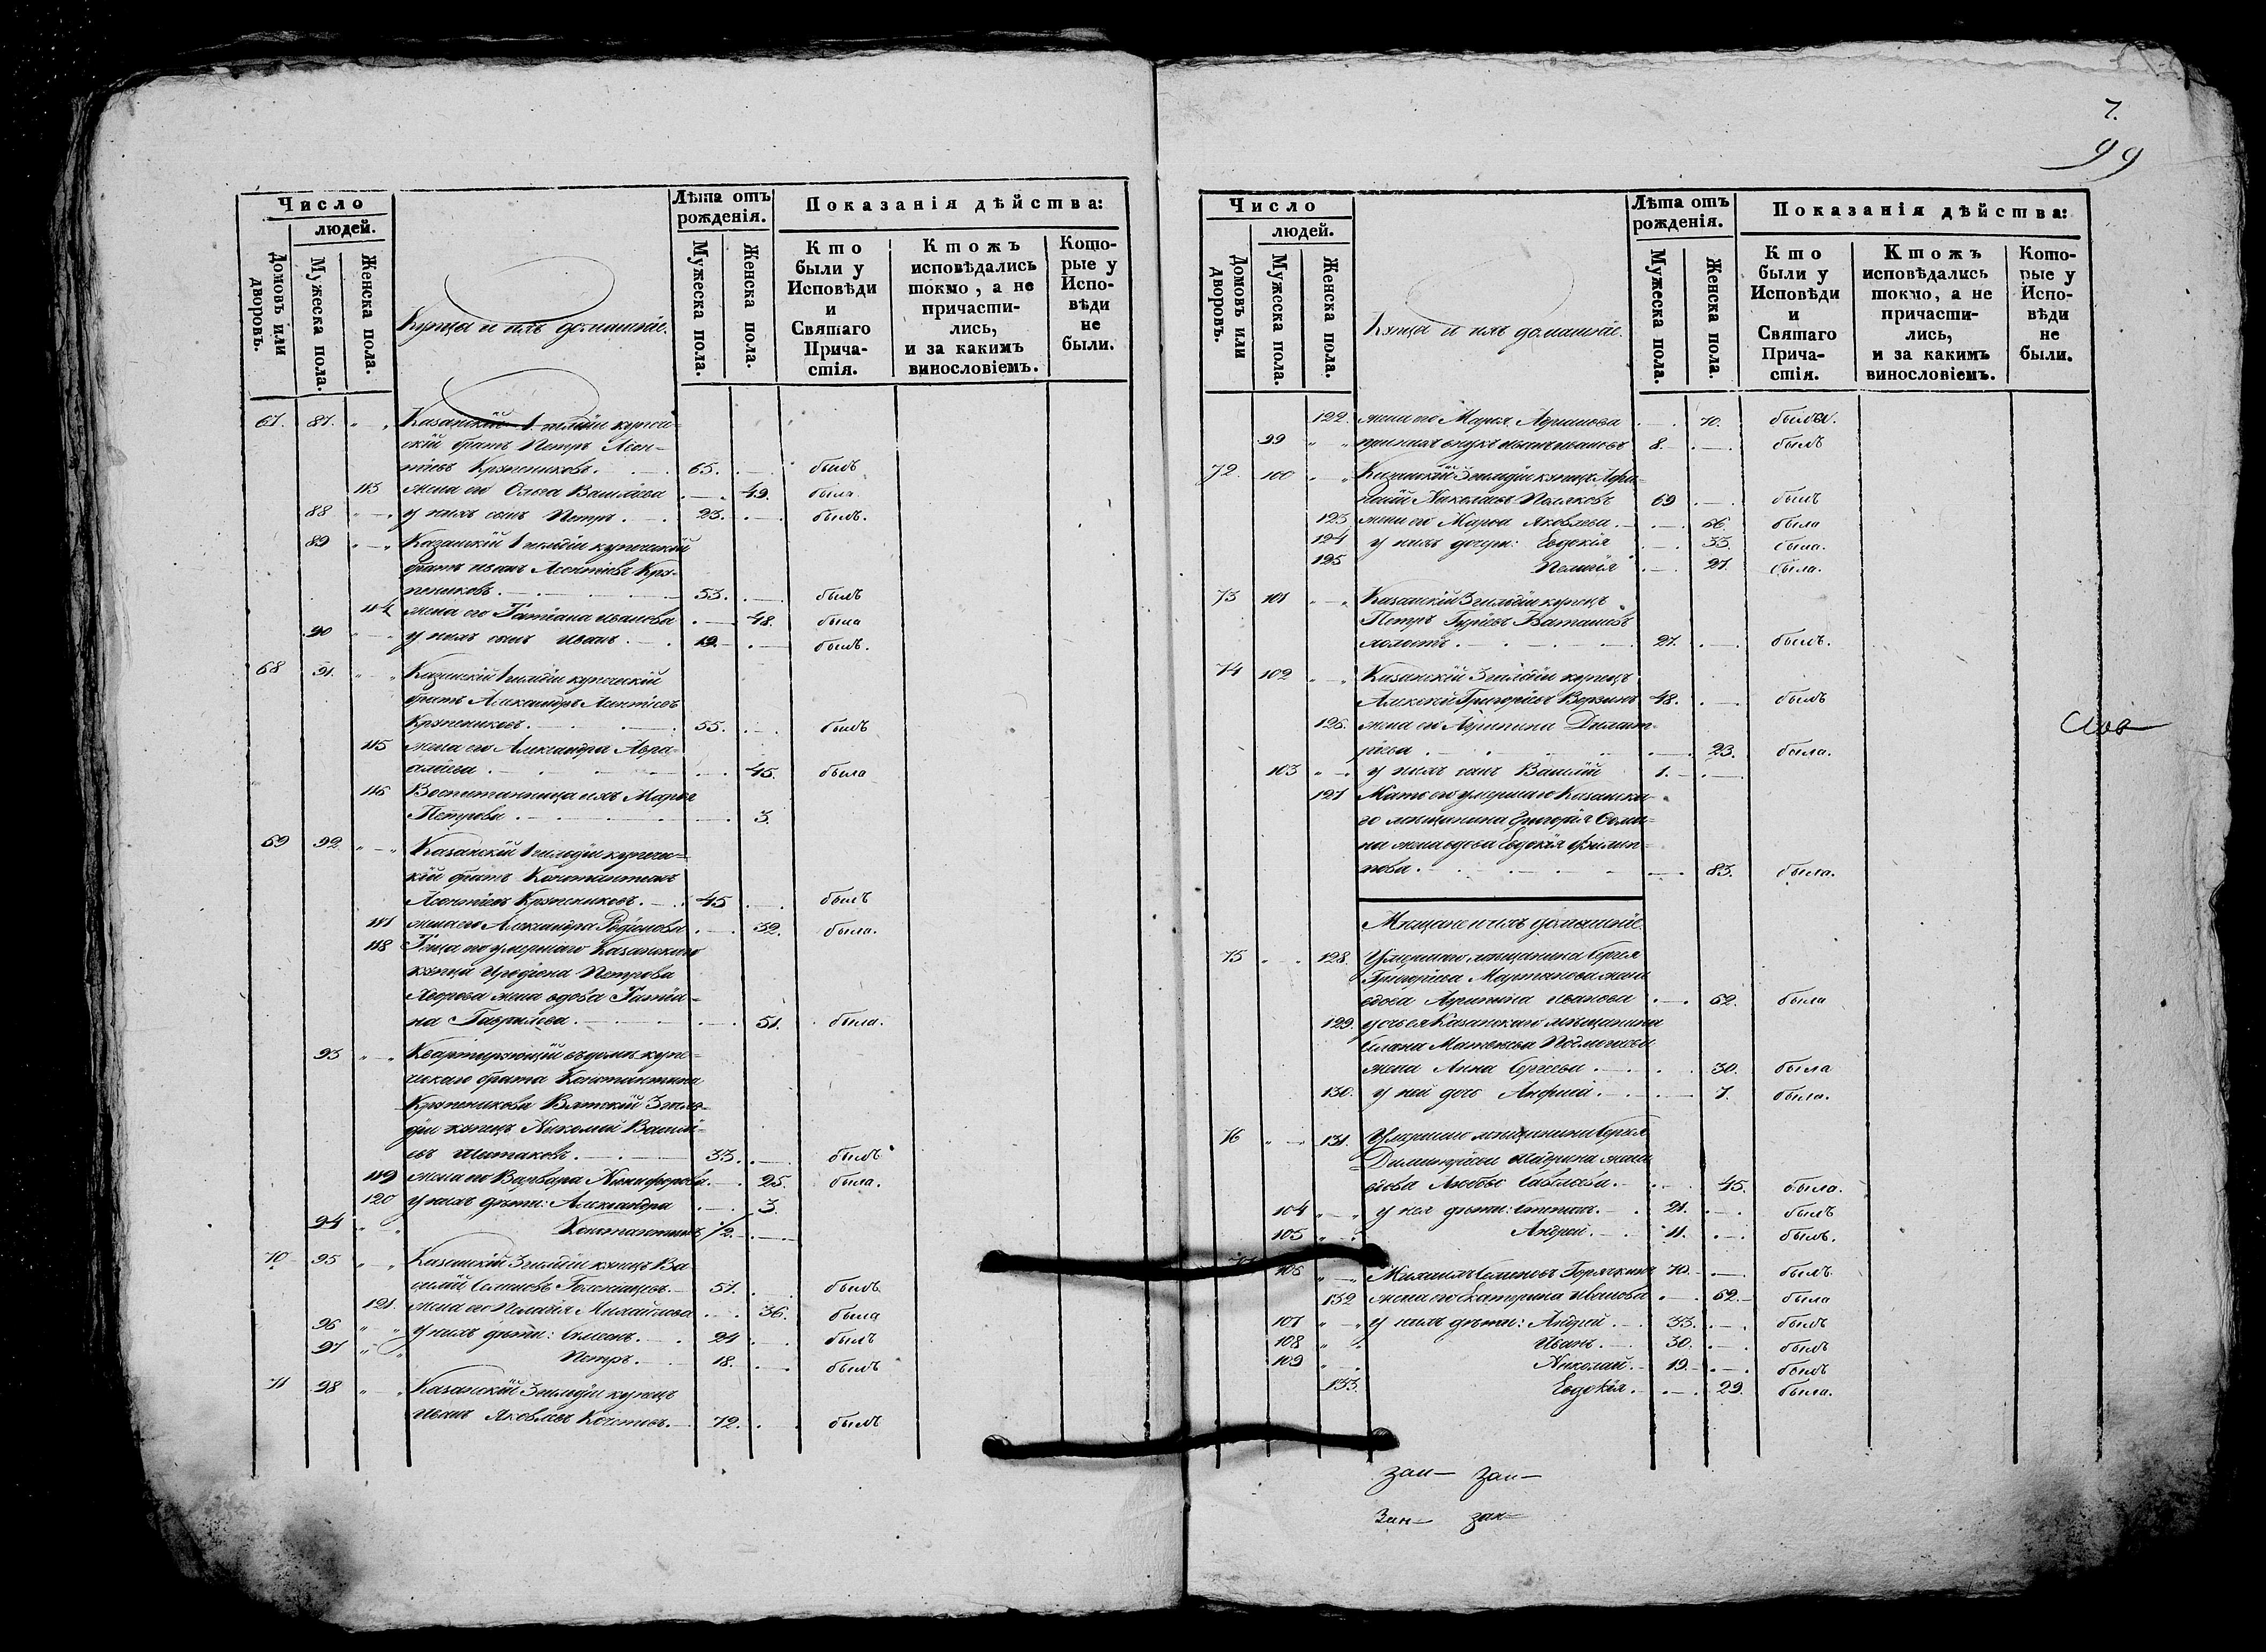 Число
людей.
Домовъ или дворовъ.
Мужеска пола.
Женска пола.
Купцы и ихъ домашніе.
Лѣта отъ рожденія.
Мужеска пола.
Женска пола.
Показанія дѣйства:
Кто были у Исповѣди и Святаго Прича- стія.
Ктожъ исповѣдались токмо, а не причасти- лись, и за какимъ винословіемъ.
Кото- рые у Испо- вѣди не были.
67. 87. Казанскій 1 гильдіи купече-
скій братъ Петръ Леон-
тіевъ Крупениковъ. 65. былъ
113 жена его Ольга Васильева 49. была
88 у нихъ сынъ Петръ. 23. былъ.
89 Казанскій 1 гильдіи купеческій
братъ Иванъ Леонтіевъ Кру-
пениковъ. 53. былъ
114 жена его Татіана Иванова 48. была
90 у нихъ сынъ Иванъ. 19. былъ.
68 91. Казанскій 1 гильдіи купеческій
братъ Александръ Леонтіевъ
Крупениковъ. 55. былъ
115 жена его Александра
45. была
116 Воспитанница ихъ Марья
Петрова. 3.
69 92. Казанскій 1 гильдіи купече-
скій братъ Константинъ
Леонтіевъ Крупениковъ. 45 былъ
117 жена его Александра Родіонова 32. была.
118 Теща его умершаго Казанскаго
купца Иродіона Петрова
жена вдова Татіа-
на Гаврилова. 51. была.
93 Квартирующій въ домѣ купе-
ческаго брата Константина
Крупеникова Вятскій 3 гиль-
діи купецъ Николай Василь-
евъ 33. былъ
119 жена его Варвара Никифорова. 25. была.
120 у нихъ дѣти: Александра 3.
94 Константинъ 1/2.
70 95 Казанскій 3 гильдіи купецъ Ва-
силій Семеновъ 57. былъ
121. жена его Пелагія Михайлова 36. была
96 у нихъ дѣти: 24 былъ
97 Петръ. 18. былъ
71 98 Казанскій 3 гильдіи купецъ
Иванъ Яковлевъ 72. былъ
7.
99
Число
людей.
Домовъ или дворовъ.
Мужеска пола.
Женска пола.
Купцы и ихъ домашніе.
Лѣта отъ рожденія.
Мужеска пола.
Женска пола.
Показанія дѣйства:
Кто были у Исповѣди и Святаго Прича- стія.
Ктожъ исповѣдались токмо, а не причасти- лись, и за какимъ винословіемъ.
Кото- рые у Испо- вѣди не были.
122. жена его Марья 70. была.
99 при нихъ внукъ 8. былъ
72. 100 Казанскій 3 гильдіи купецъ
Николаевъ Поляковъ 69 былъ
123 жена его Марья Яковлева. 66. была
124 у нихъ дочери: Евдокія 33. была.
125 Пелагія 27. была.
73 101 Казанскій 3 гильдіи купецъ
Петръ Гурьевъ
холостъ. 27. былъ.
74 102 Казанскій 3 гильдіи купецъ
Алексѣй Григорьевъ 48. былъ
126. жена его Агрипина Дмит-
ріева 23. была.
103 у нихъ сынъ Василій 1.
127 Мать его умершаго Казанска-
го мѣщанина Григорія
жена вдова Евдокія Филип-
пова. 83. была.
Мѣщане и ихъ домашніе.
75 128. Умершаго мѣщанина Сергея
Григорьева жена
вдова Агрипина Иванова 62. была
129. у нея Казанскаго мѣщанина
жена Анна Сергеева 30. была
130. у ней дочь 7. была.
76 131. Умершаго мѣщанина Сергея
Дмитріева жена
вдова Любовь 45. была.
104 у нея дѣти: Степанъ. 21. былъ
105 Андрей. 11. былъ.
106 Михаилъ Семеновъ Горячкинъ 70. былъ
132 жена его Екатерина Иванова 62. была
107 у нихъ дѣти: Андрей 33. былъ
108 Иванъ. 30. былъ
109 Николай. 19. былъ
133. Евдокія. 29. была.